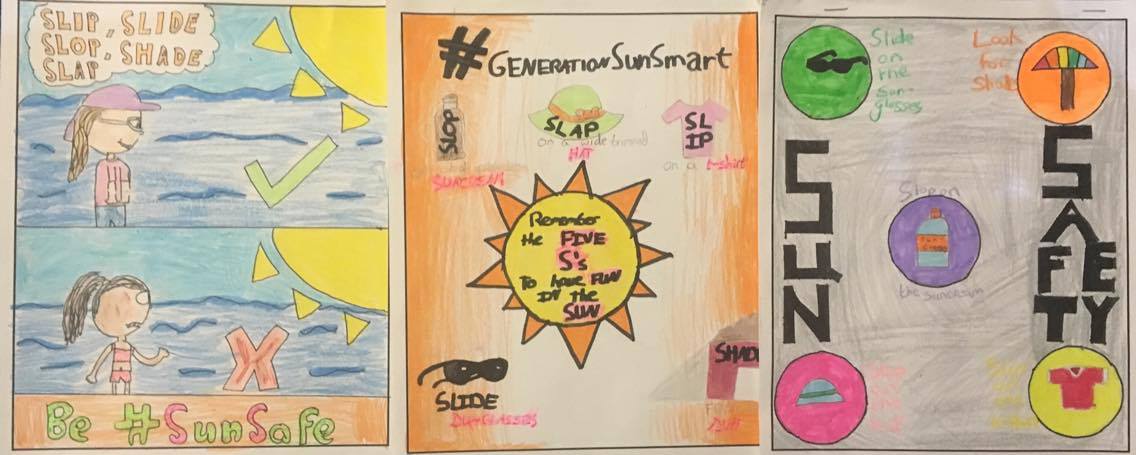 SLIP, SLIDE
SLOP, SHADE
SLAP
Be #SunSafe
#GENERATIONSUNSMART
SLOP
SLAP
on a wide brimmed
HAT
SL
IP
on a t-shirt
Remember
the FIVE
S's
To have FUN
IN the
SUN
SLIDE
SHAD
Slide
on
the
sun-
glasses
Look
for
Shade
SUN
SAFETY
Slop on
the sunscreen